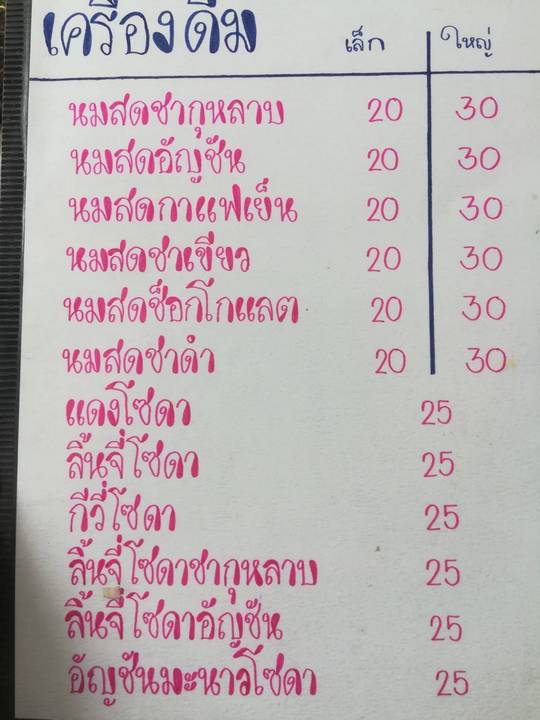 เครื่องดื่ม เล็ก ใหญ่
นมสดชากุหลาบ 20 30
นมสดอัญชัน 20 30
นมสดกาแฟเย็น 20 30
นมสดชาเขียว 20 30
นมสดช็อกโกแลต 20 30
นมสดชาดำ 20 30
แดงโซดา 25
ลิ้นจี่โซดา 25
กีวี่โซดา 25
ลิ้นจี่โซดาชากุหลาบ 25
ลิ้นจี่โซดาอัญชัน 25
อัญชันมะนาวโซดา 25